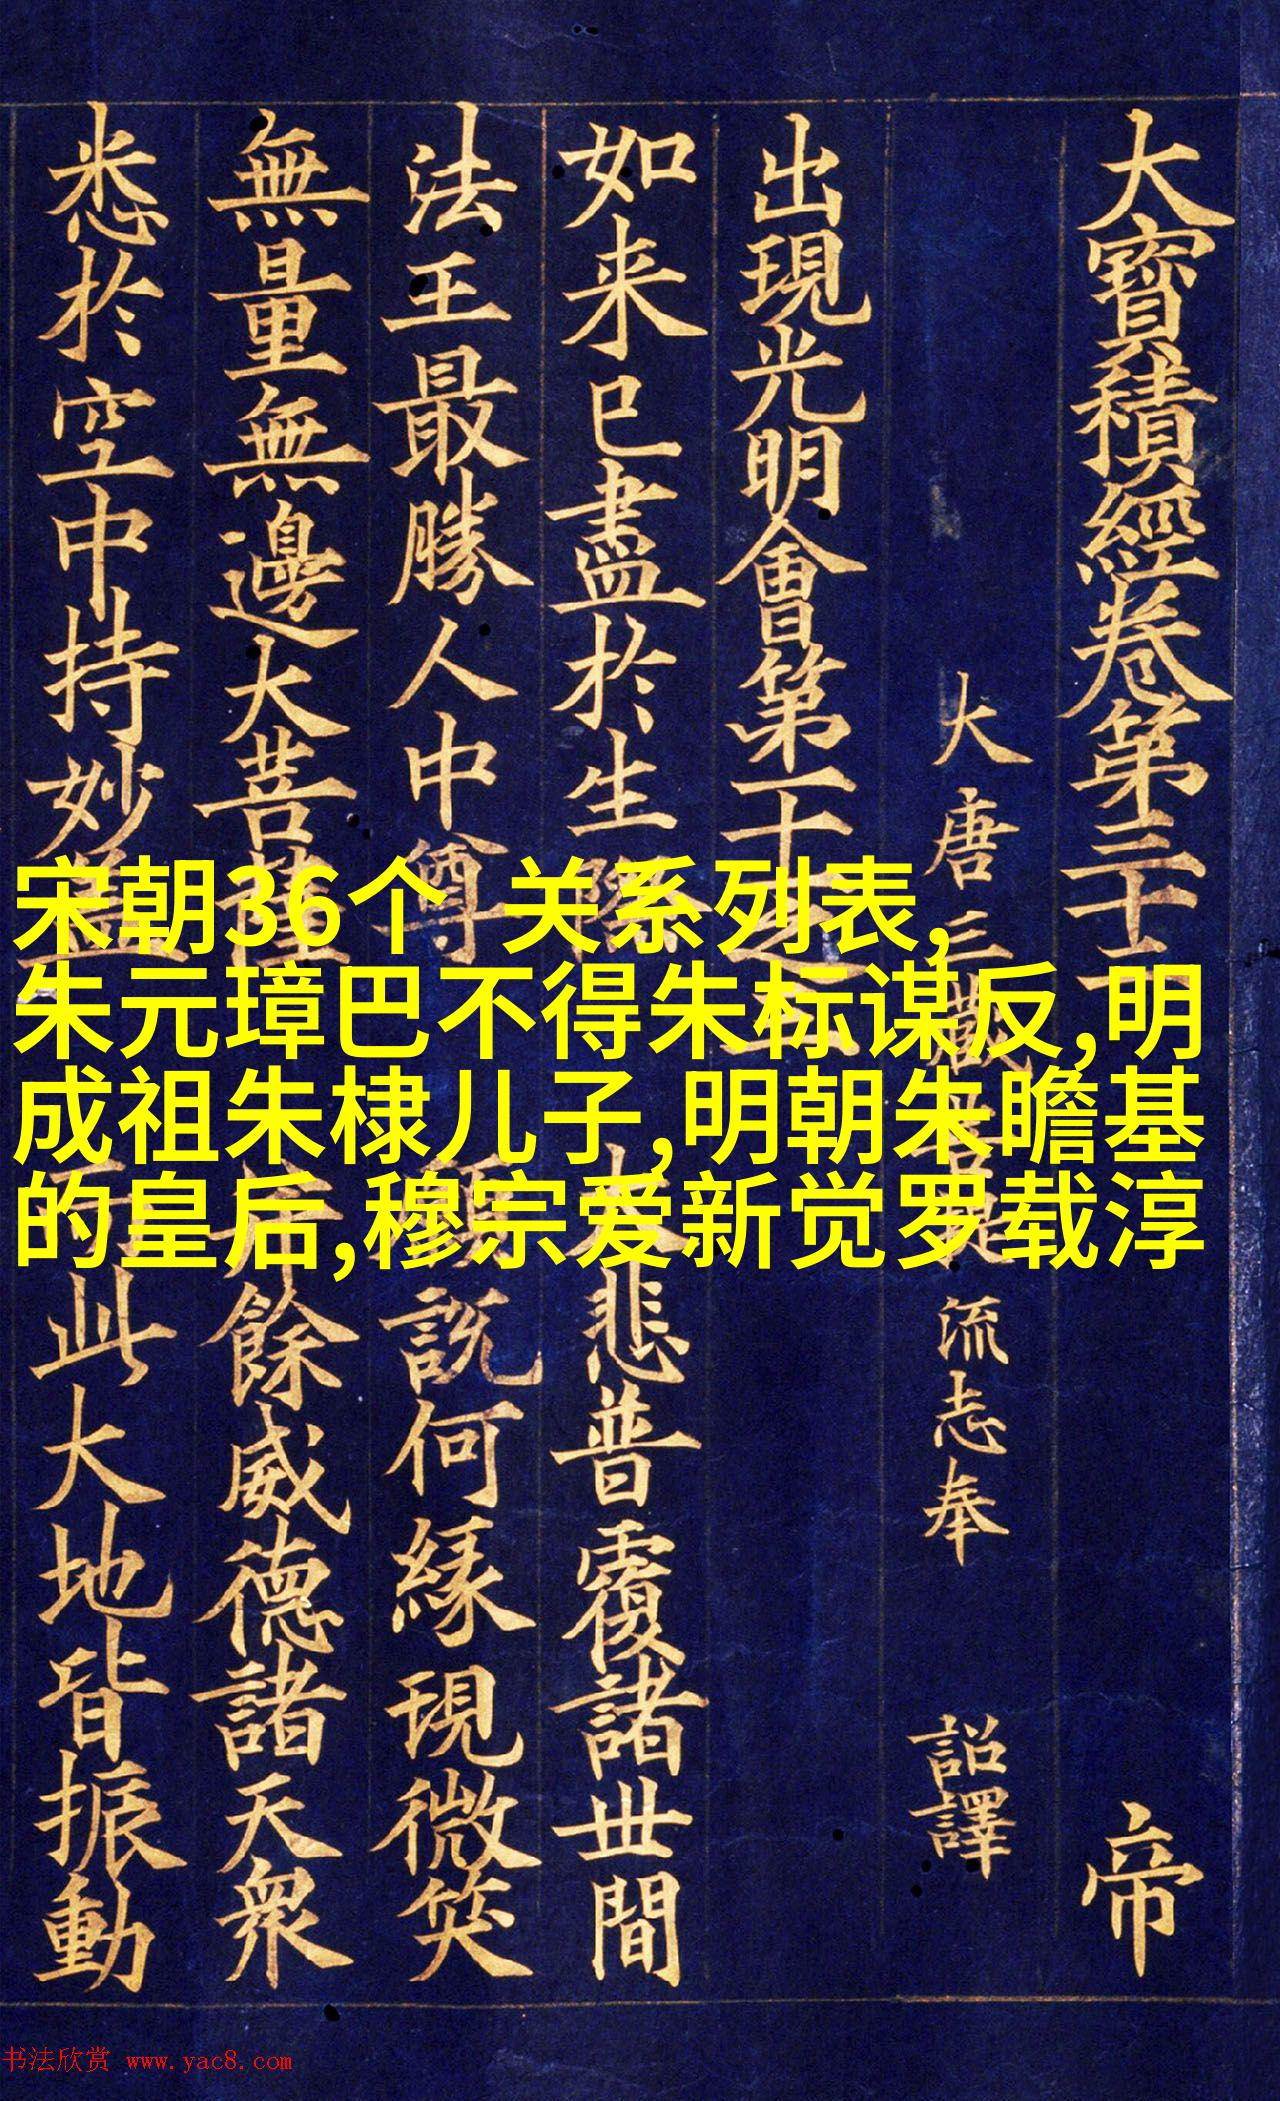 宋朝36个 关系列表,
朱元璋巴不得朱标谋反,明
成祖朱棣儿子,明朝朱瞻基
的皇后,穆宗爱新觉罗载淳
大寶積經卷第三十 帝
大唐三藏菩提流志奉 詔譯
出現光明會第十一之
如来已盡於生際 大悲普覆諸世間
法王最勝人中尊 願說何縁現微笑
無量無邊大菩薩 餘威德諸天衆
悉於空中持妙盖 此大地皆振動
书法欣赏 www.yac8.com